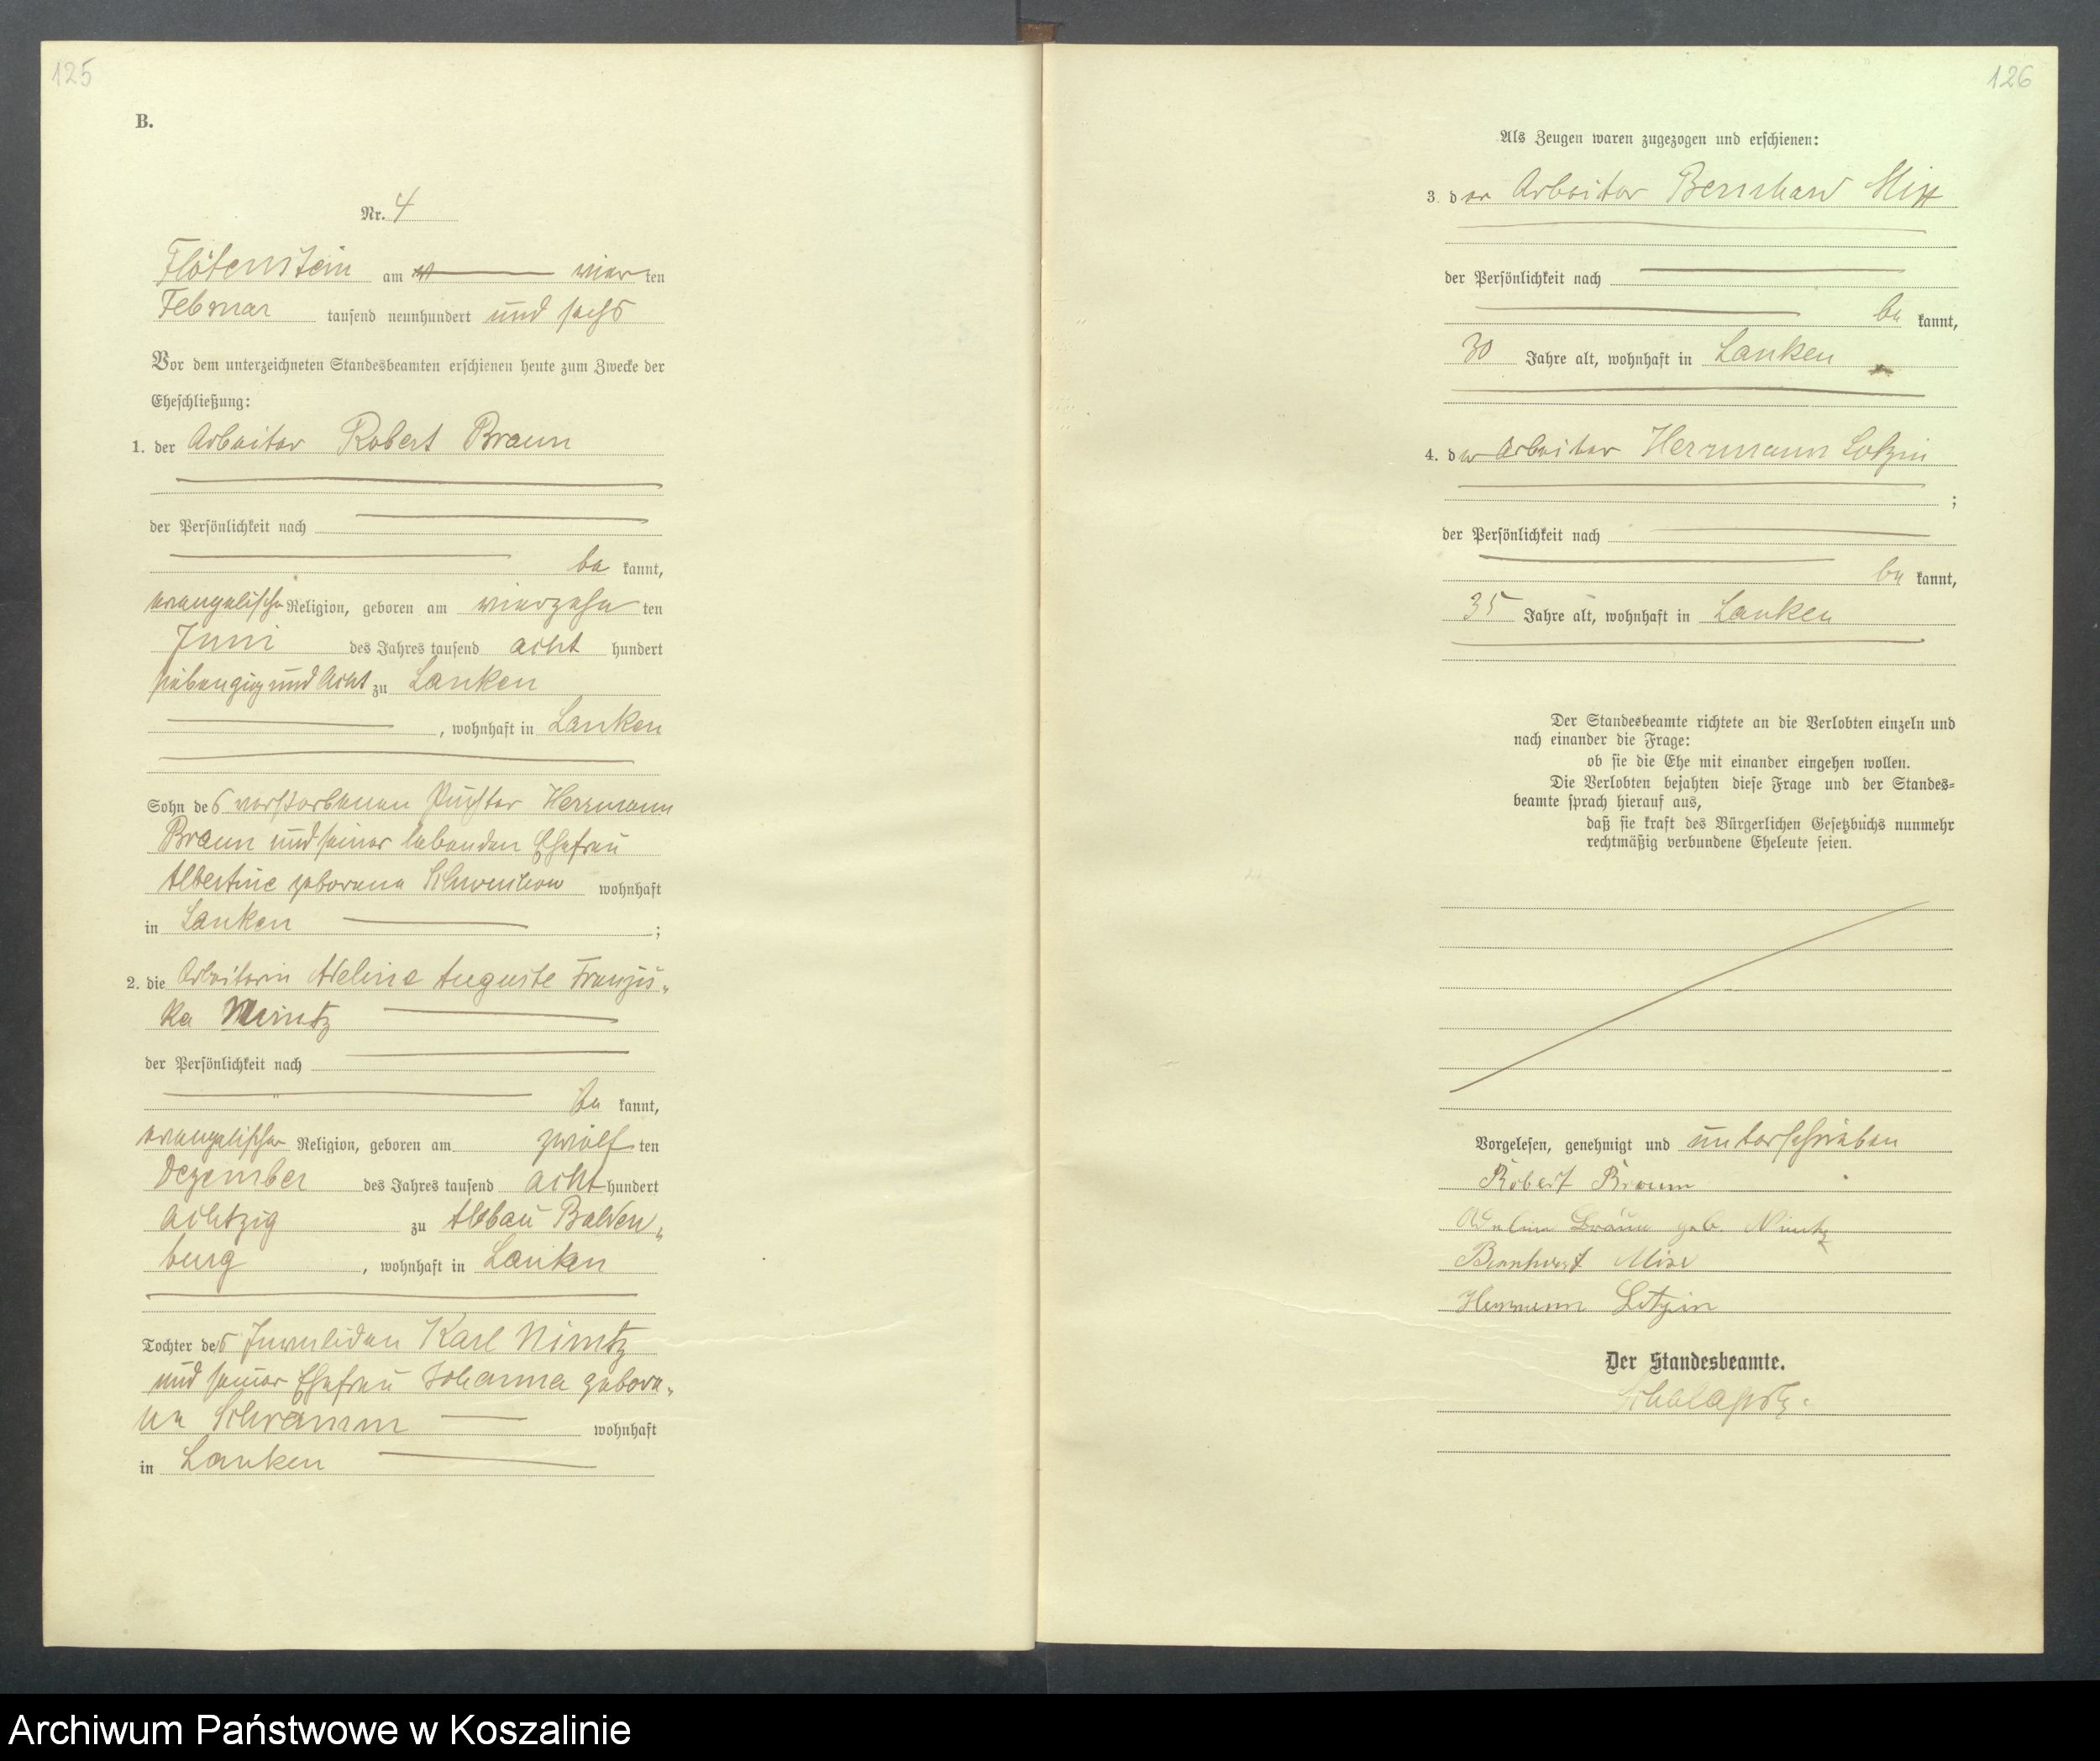 125
B.
Nr. 4
Flötenstein am vier ten
Februar tausend neunhundert und sechs
Vor dem unterzeichneten Standesbeamten erschienen heute zum Zwecke der
Eheschließung:
1. der Arbeiter Robert Braun
der Persönlichkeit nach
be kannt,
evangelischer Religion, geboren am vierzehn ten
Juni des Jahres tausend acht hundert
siebenzig und acht zu Lanken
, wohnhaft in Lanken
Sohn des verstorbenen Herrmann
Braun und seiner lebenden Ehefrau
Albertine geborene wohnhaft
in Lanken ;
2. die Arbeiterin Adeline Auguste Franzis„
ka Nimtz
der Persönlichkeit nach
be kannt,
evangelischer Religion, geboren am zwölf ten
Dezember des Jahres tausend acht hundert
achtzig zu Abbau Balden„
burg , wohnhaft in Lanken
Tochter des Invaliden Karl Nimtz
und seiner Ehefrau Johanna gebore„
ne Schramm wohnhaft
in Lanken
126
Als Zeugen waren zugezogen und erschienen:
3. der Arbeiter Bernhard
der Persönlichkeit nach
be kannt,
30 Jahre alt, wohnhaft in Lanken
4. der Arbeiter Herrmann Lotzin
;
der Persönlichkeit nach
be kannt,
35 Jahre alt, wohnhaft in Lanken
Der Standesbeamte richtete an die Verlobten einzeln und
nach einander die Frage:
ob sie die Ehe mit einander eingehen wollen.
Die Verlobten bejahten diese Frage und der Standes=
beamte sprach hierauf aus,
daß sie kraft des Bürgerlichen Gesetzbuchs nunmehr
rechtmäßig verbundene Eheleute seien.
Vorgelesen, genehmigt und unterschrieben
Robert Braun
Adeline Braun geb. Nimtz
Bernhard
Herrmann Lotzin
Der Standesbeamte.
Archiwum Państwowe w Koszalinie